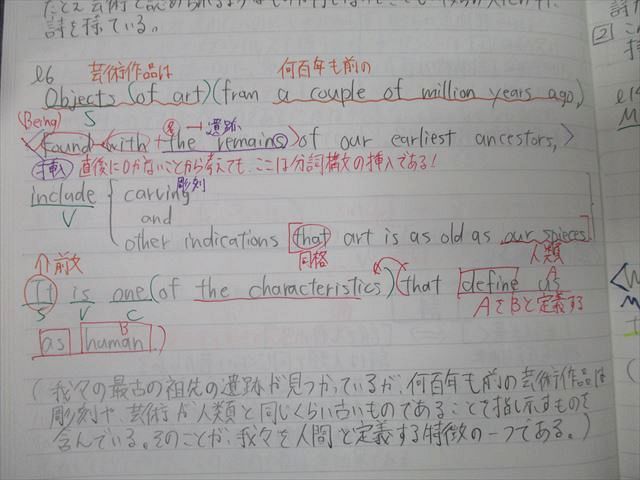 詩を採ている。
l6 芸術作品は 何百年も前の
Objects (of art) (from a couple of million years ago,)
S
(Being) → 遺跡
found with the remains of our earliest ancestors,
挿入 直後にOがないことから考えても、ここは分詞構文の挿入である!
include carving 彫刻
V and
other indications that art is as old as our spieces
↑前文 同格 人類
It is one (of the characteristics) (that define us
S V C A AをBと定義する
B
as human.)
(我々の最古の祖先の遺跡が見つかっているが、何百年も前の芸術作品は
彫刻や、芸術が人類と同じくらい古いものであることを指し示すものを
含んでいる。そのことが、我々を人間と定義する特徴の一つである。)
2